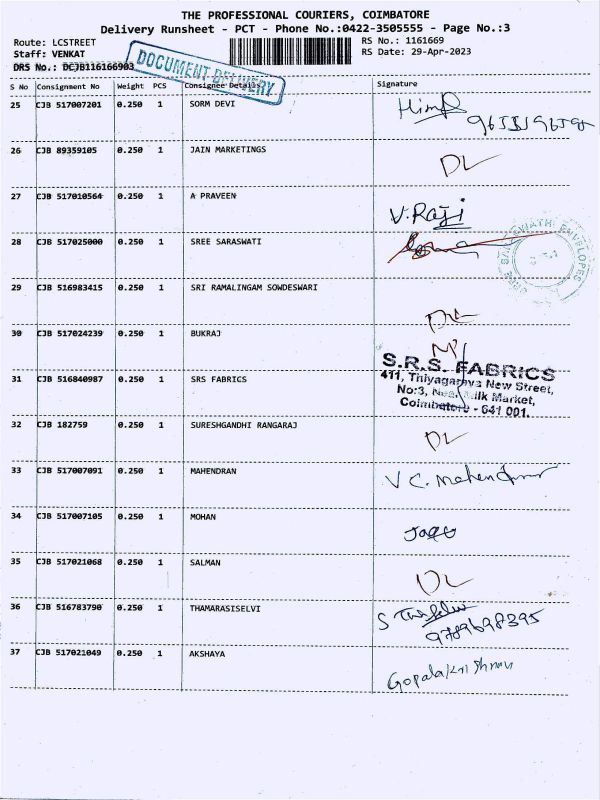 THE PROFESSIONAL COURIERS, COIMBATORE
Delivery Runsheet - PCT - Phone No.:0422-3505555 - Page No.:3
Route: LCSTREET RS No.: 1161669
Staff: VENKAT RS Date: 29-Apr-2023
DRS No.: DCJB116166903
DOCUMENT DELIVERY
S No Consignment No Weight PCS Consignee Details Signature
25 CJB 517007201 0.250 1 SORM DEVI
26 CJB 89359105 0.250 1 JAIN MARKETINGS DL
27 CJB 517010564 0.250 1 A PRAVEEN V.Raji
28 CJB 517025000 0.250 1 SREE SARASWATI
29 CJB 516983415 0.250 1 SRI RAMALINGAM SOWDESWARI
30 CJB 517024239 0.250 1 BUKRAJ
31 CJB 516840987 0.250 1 SRS FABRICS
S.R.S. FABRICS
411, Thiyagaraya New Street,
No:3, Near Milk Market,
Coimbatore - 641 001.
32 CJB 182759 0.250 1 SURESHGANDHI RANGARAJ DL
33 CJB 517007091 0.250 1 MAHENDRAN V C. Mahendran
34 CJB 517007105 0.250 1 MOHAN
35 CJB 517021068 0.250 1 SALMAN DL
36 CJB 516783790 0.250 1 THAMARASISELVI
9789698395
37 CJB 517021049 0.250 1 AKSHAYA Gopalakrishnan